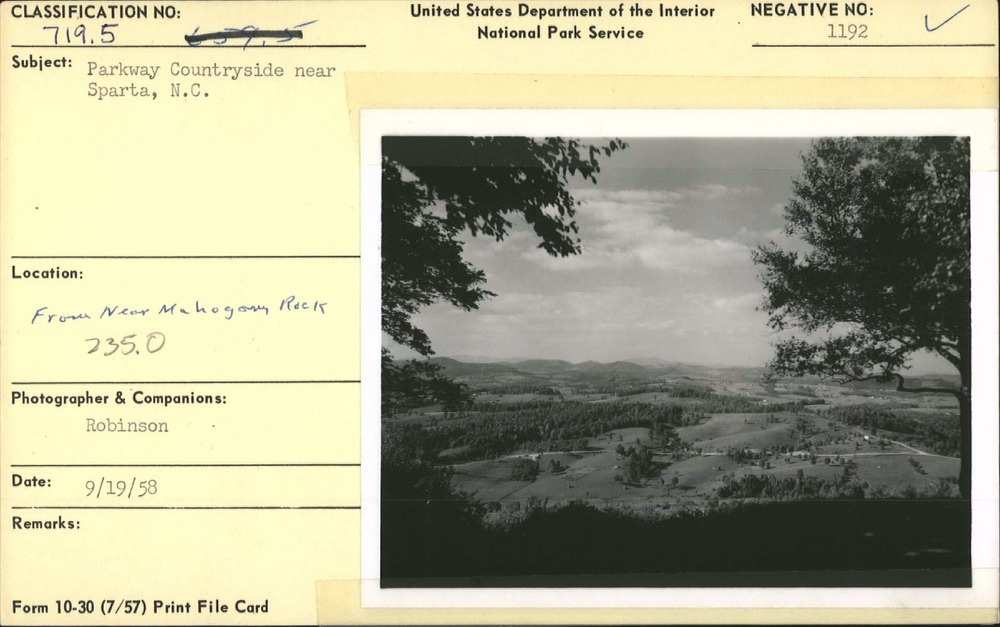 CLASSIFICATION NO:
719.5 659.5
United States Department of the Interior
National Park Service
NEGATIVE NO:
1192
Subject: Parkway Countryside near
Sparta, N.C.
Location:
From Near Mahogany Rock
235.0
Photographer & Companions:
Robinson
Date: 9/19/58
Remarks:
Form 10-30 (7/57) Print File Card